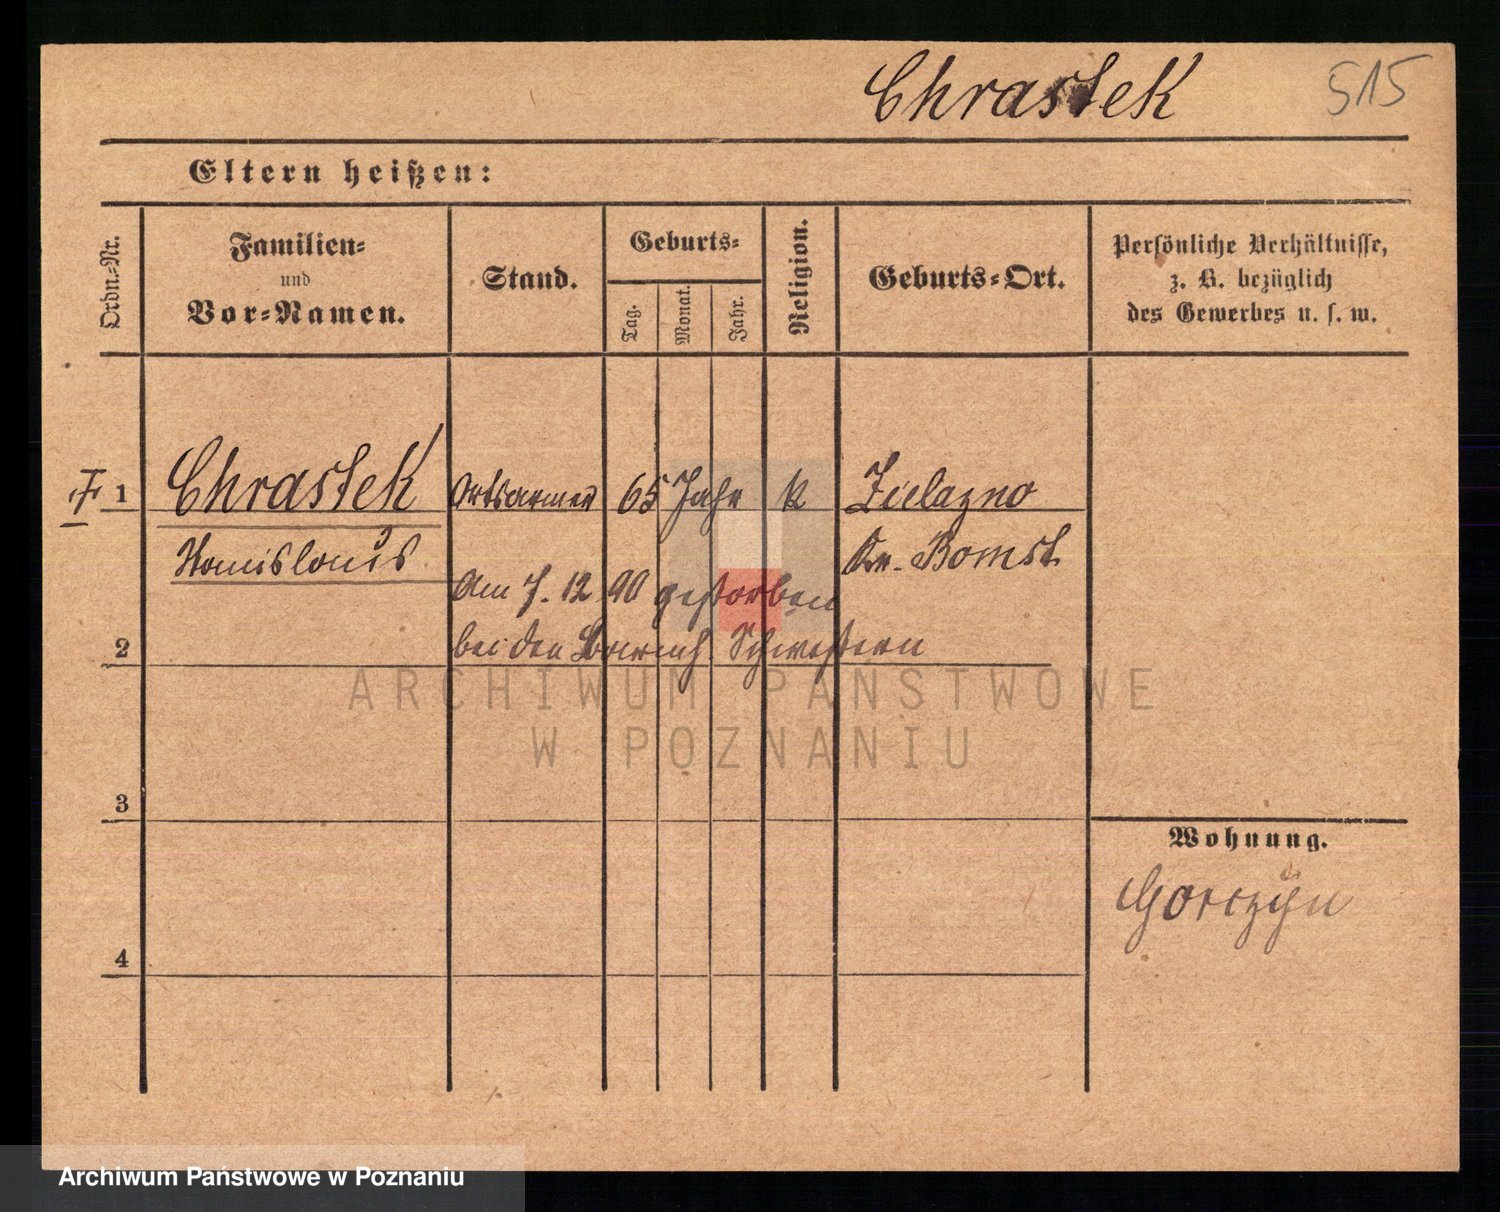 Chrastek 515
Eltern heißen:
Ordn.-Nr.
Familien-
und
Vor-Namen.
Stand.
Geburts-
Tag.
Monat.
Jahr.
Religion.
Geburts-Ort.
Persönliche Verhältnisse,
z. B. bezüglich
des Gewerbes u. s. w.
1 Chrastek Ortsarmer 65 Jahr k Zielazno
Kr. Bomst.
Am 7. 12. 90 gestorben
2 bei den Schwestern
ARCHIWUM PAŃSTWOWE
W POZNANIU
3
Wohnung.
Gorczyn
4
Archiwum Państwowe w Poznaniu